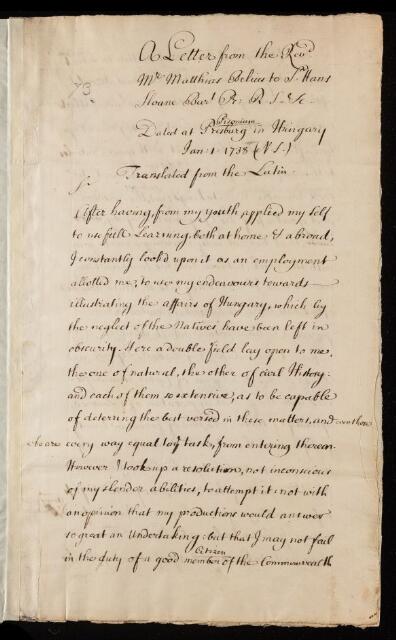 73.
A Letter from the Revd
Mr Matthias Belius to Sr Hans
Sloane Bart. Pr. R. S. &c.
Posonium
Dated at Presburg in Hungary
Jan. 1. 1738 (N S.)
Translated from the Latin.
Sr.
After having, from my youth applied my self
to usefull Learning both at home & abroad,
I constantly look'd upon it as an employment
allotted me, to use my endeavours towards
illustrating the affairs of Hungary, which by
the neglect of the Natives, have been left in
obscurity. Here a double field lay open to me,
the one of natural, the other of civil History:
and each of them so extensive, as to be capable
of deterring the best versed in these matters, and even those
who are every way equal to ye task, from entering therein.
However I took up a resolution, not inconscious
of my slender abilities, to attempt it: not with
an opinion that my productions would answer
so great an undertaking: but that I may not fail
Citizen
in the duty of a good member of the Commonwealth